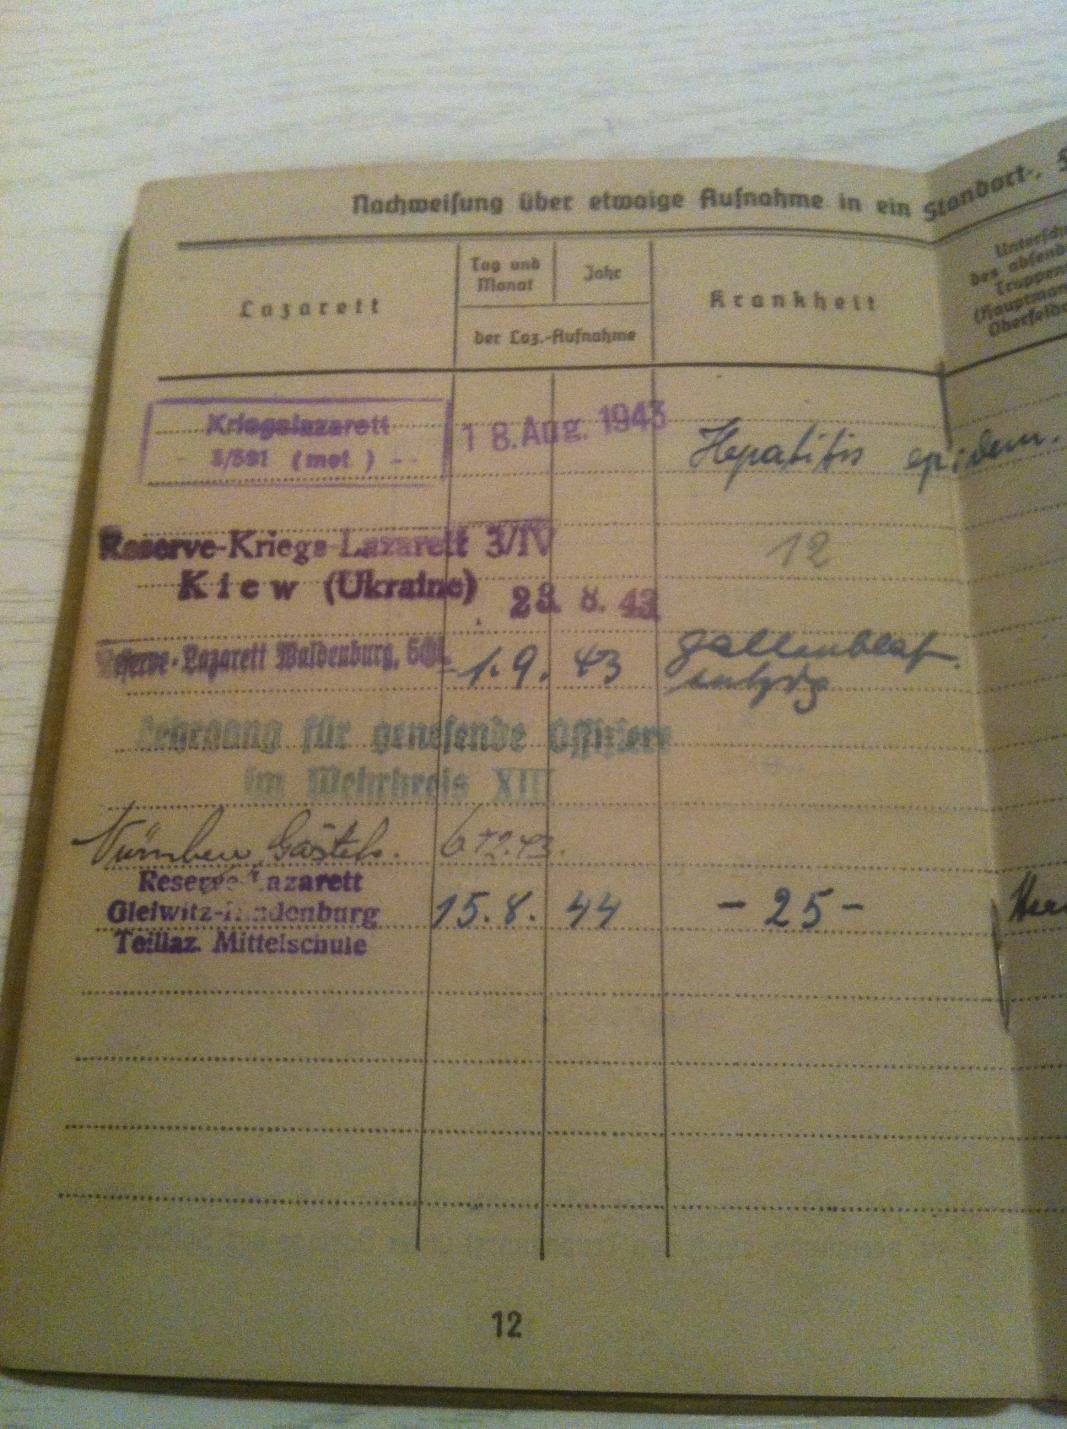 Nachweisung über etwaige Aufnahme in ein Standort-,
Lazarett
Tag und
Monat
Jahr
der Laz.-Aufnahme
Krankheit
des
Kriegslazarett
3/591 (mot )
18. Aug. 1943
Hepatitis epidem.
Reserve-Kriegs-Lazarett 3/IV
12
Kiew (Ukraine)
23. 8. 43
Reserve-Lazarett Waldenburg,
1. 9. 43
Gallenblas.
entzdg
Lehrgang für genesende Offiziere
im Wehrkreis XIII
6.12.43.
Reserve-Lazarett
Gleiwitz-Hindenburg
Teillaz. Mittelschule
15. 8. 44
- 25 -
12